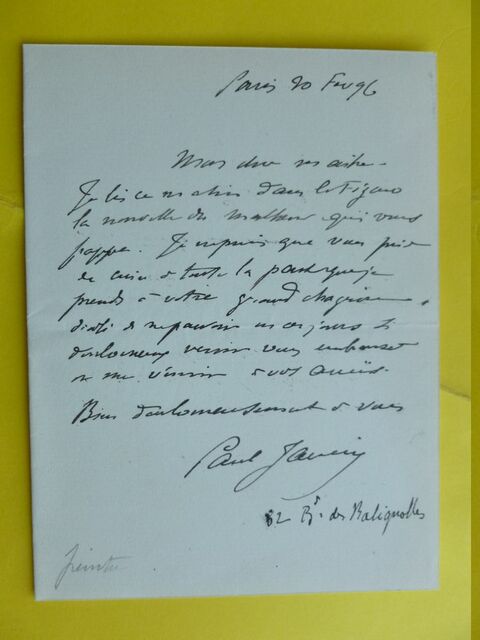 Paris 20 Fev 96
Mon cher maître
Je lis ce matin dans le Figaro
la nouvelle du malheur qui vous
frappe. Je ne puis que vous prier
de croire à toute la part que je
prends à votre grand chagrin
désolé de ne pouvoir en ces jours si
douloureux venir vous embrasser
Bien douloureusement à vous
Paul
82 Bd. des Batignolles
peintre